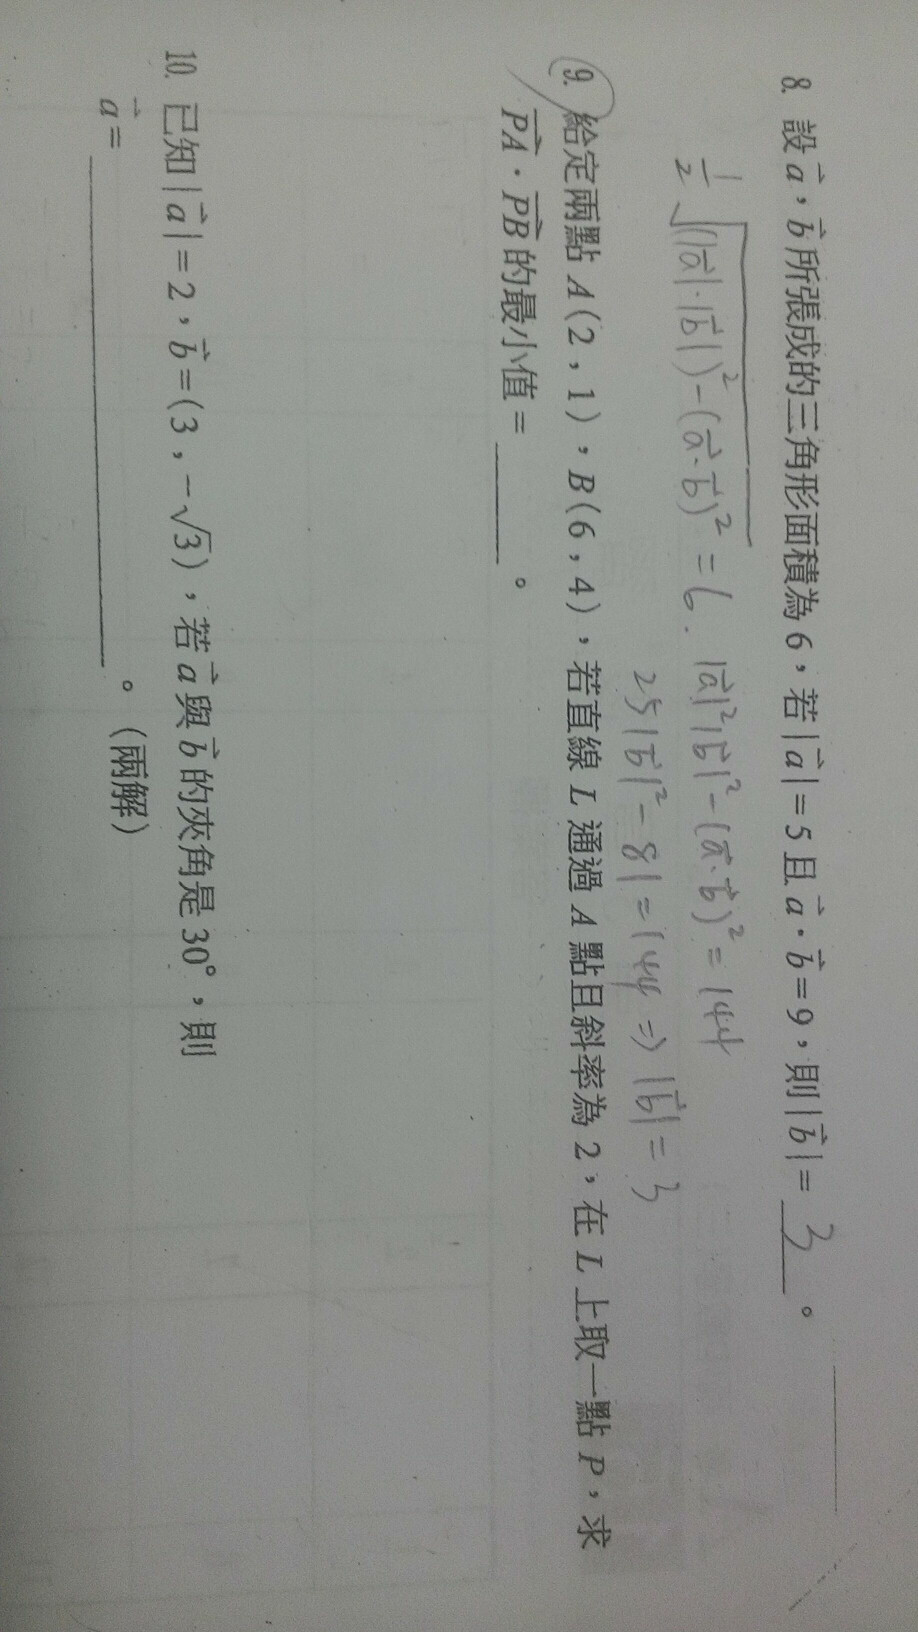 8. 設 a⃗，b⃗ 所張成的三角形面積為 6，若 |a⃗| = 5 且 a⃗ · b⃗ = 9，則 |b⃗| = 3 。
1/2 √(|a⃗|·|b⃗|)² - (a⃗·b⃗)² = 6. |a⃗|²|b⃗|² - (a⃗·b⃗)² = 144
25|b⃗|² - 81 = 144 ⇒ |b⃗| = 3
9. 給定兩點 A(2，1)，B(6，4)，若直線 L 通過 A 點且斜率為 2，在 L 上取一點 P，求
PA⃗ · PB⃗ 的最小值 = ______ 。
10. 已知 |a⃗| = 2，b⃗ = (3，-√3)，若 a⃗ 與 b⃗ 的夾角是 30°，則
a⃗ = ______ 。（兩解）